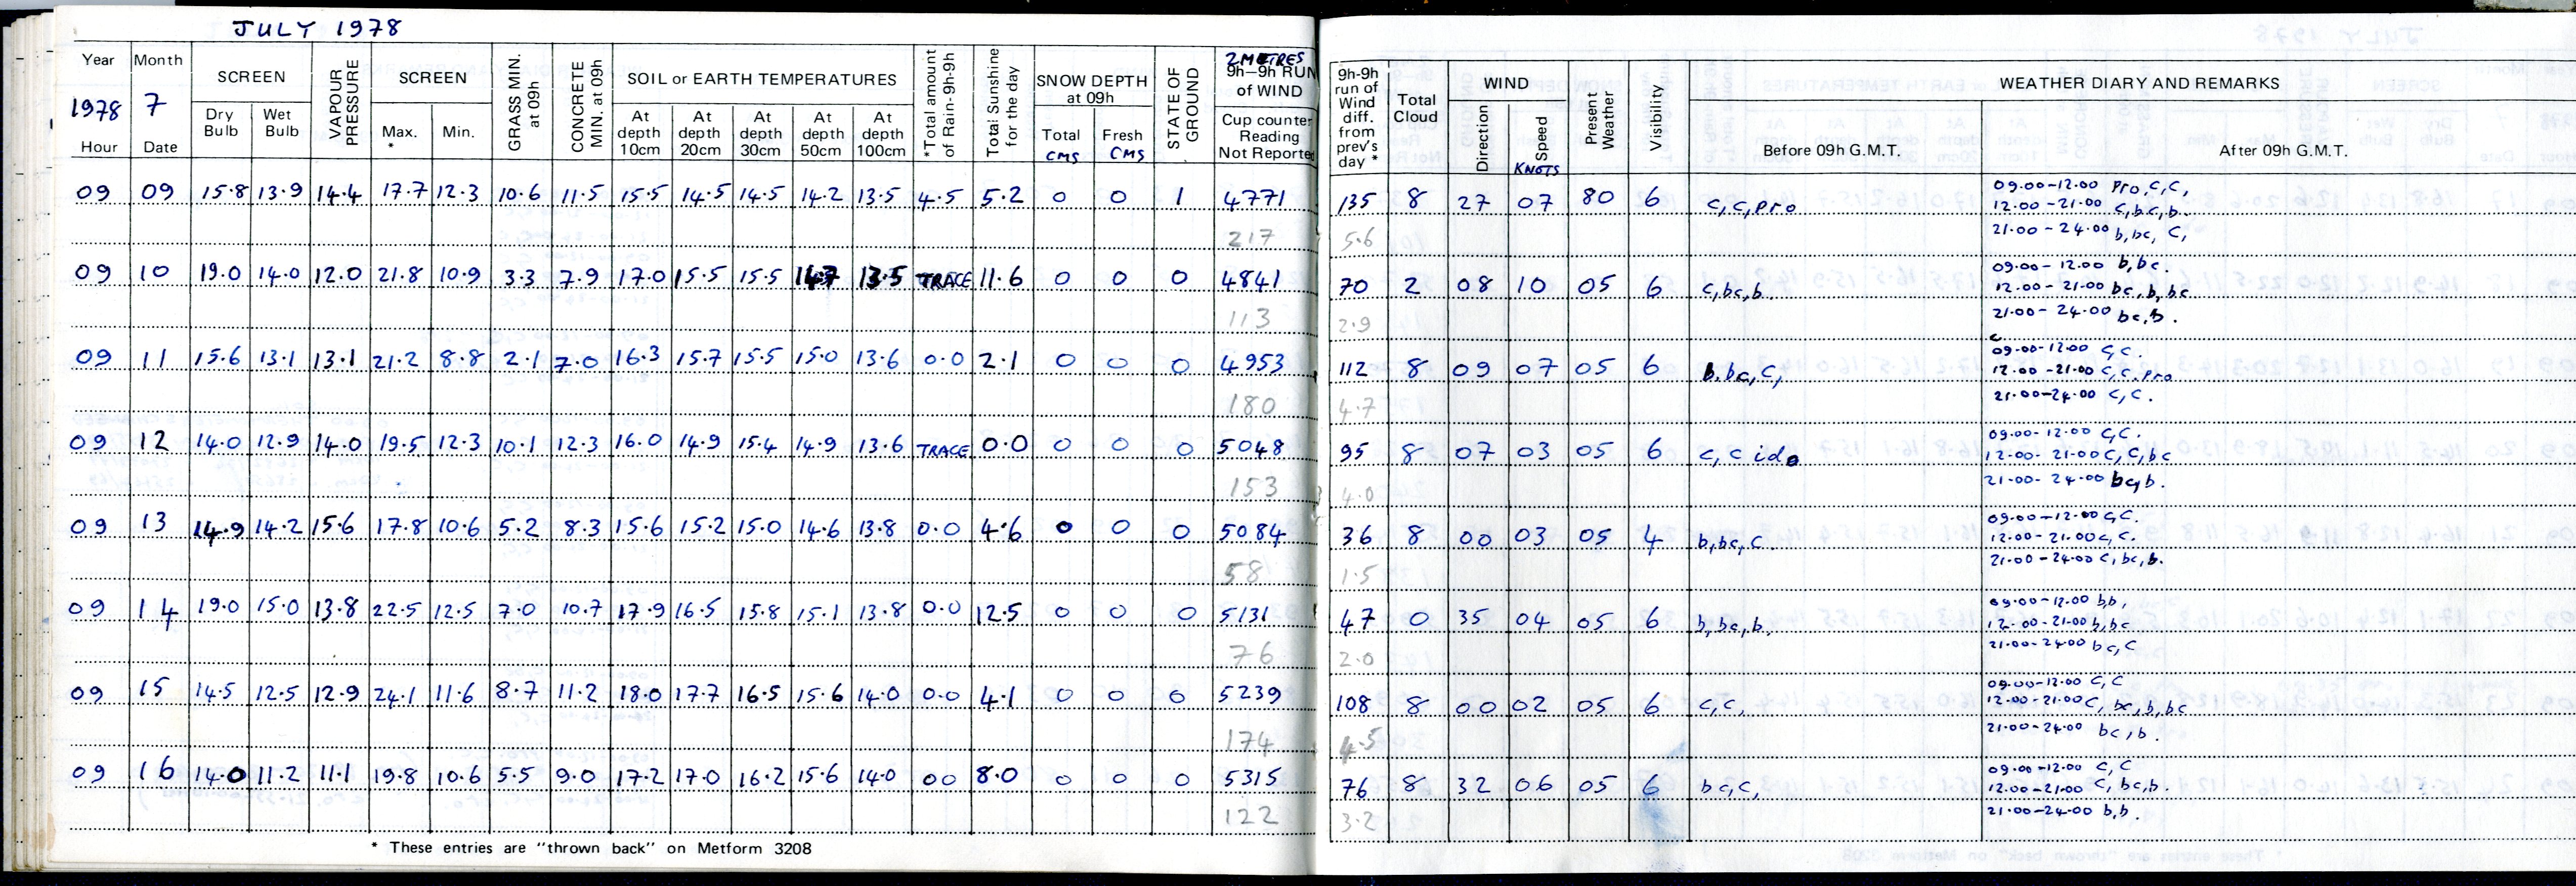 JULY 1978
Year Month SCREEN VAPOUR PRESSURE SCREEN GRASS MIN. at 09h CONCRETE MIN. at 09h SOIL or EARTH TEMPERATURES *Total amount of Rain-9h-9h Total Sunshine for the day SNOW DEPTH at 09h STATE OF GROUND 2 METRES 9h-9h RUN of WIND
1978 7 Dry Bulb Wet Bulb Max. * Min. At depth 10cm At depth 20cm At depth 30cm At depth 50cm At depth 100cm Total CMS Fresh CMS Cup counter Reading Not Reported
Hour Date
09 09 15.8 13.9 14.4 17.7 12.3 10.6 11.5 15.5 14.5 14.5 14.2 13.5 4.5 5.2 0 0 1 4771
217
09 10 19.0 14.0 12.0 21.8 10.9 3.3 7.9 17.0 15.5 15.5 14.7 13.5 TRACE 11.6 0 0 0 4841
113
09 11 15.6 13.1 13.1 21.2 8.8 2.1 7.0 16.3 15.7 15.5 15.0 13.6 0.0 2.1 0 0 0 4953
180
09 12 14.0 12.9 14.0 19.5 12.3 10.1 12.3 16.0 14.9 15.4 14.9 13.6 TRACE 0.0 0 0 0 5048
153
09 13 14.9 14.2 15.6 17.8 10.6 5.2 8.3 15.6 15.2 15.0 14.6 13.8 0.0 4.6 0 0 0 5084
58
09 14 19.0 15.0 13.8 22.5 12.5 7.0 10.7 17.9 16.5 15.8 15.1 13.8 0.0 12.5 0 0 0 5131
76
09 15 14.5 12.5 12.9 24.1 11.6 8.7 11.2 18.0 17.7 16.5 15.6 14.0 0.0 4.1 0 0 0 5239
174
09 16 14.0 11.2 11.1 19.8 10.6 5.5 9.0 17.2 17.0 16.2 15.6 14.0 00 8.0 0 0 0 5315
122
* These entries are "thrown back" on Metform 3208
9h-9h run of Wind diff. from prev's day * Total Cloud WIND Present Weather Visibility WEATHER DIARY AND REMARKS
Direction Speed KNOTS Before 09h G.M.T. After 09h G.M.T.
135 8 27 07 80 6 c,c,pro 09.00-12.00 pro,c,c,
12.00-21.00 c,bc,b.
5.6 21.00-24.00 b,bc, c,
70 2 08 10 05 6 c,bc,b. 09.00-12.00 b,bc.
12.00-21.00 bc,b,bc
2.9 21.00-24.00 bc,b.
112 8 09 07 05 6 b.bc,c, 09.00-12.00 c,c.
12.00-21.00 c,c,pro
4.7 21.00-24.00 c,c.
95 8 07 03 05 6 c,c ido 09.00-12.00 c,c.
12.00-21.00 c,c,bc
4.0 21.00-24.00 bc,b.
36 8 00 03 05 4 b,bc,c. 09.00-12.00 c,c.
12.00-21.00 c,c.
1.5 21.00-24.00 c,bc,b.
47 0 35 04 05 6 b,bc,b. 09.00-12.00 b,b,
12.00-21.00 b,bc
2.0 21.00-24.00 bc,c
108 8 00 02 05 6 c,c, 09.00-12.00 c,c
12.00-21.00 c, bc,b,bc
4.5 21.00-24.00 bc,b.
76 8 32 06 05 6 bc,c, 09.00-12.00 c,c
12.00-21.00 c, bc,b.
3.2 21.00-24.00 b,b.